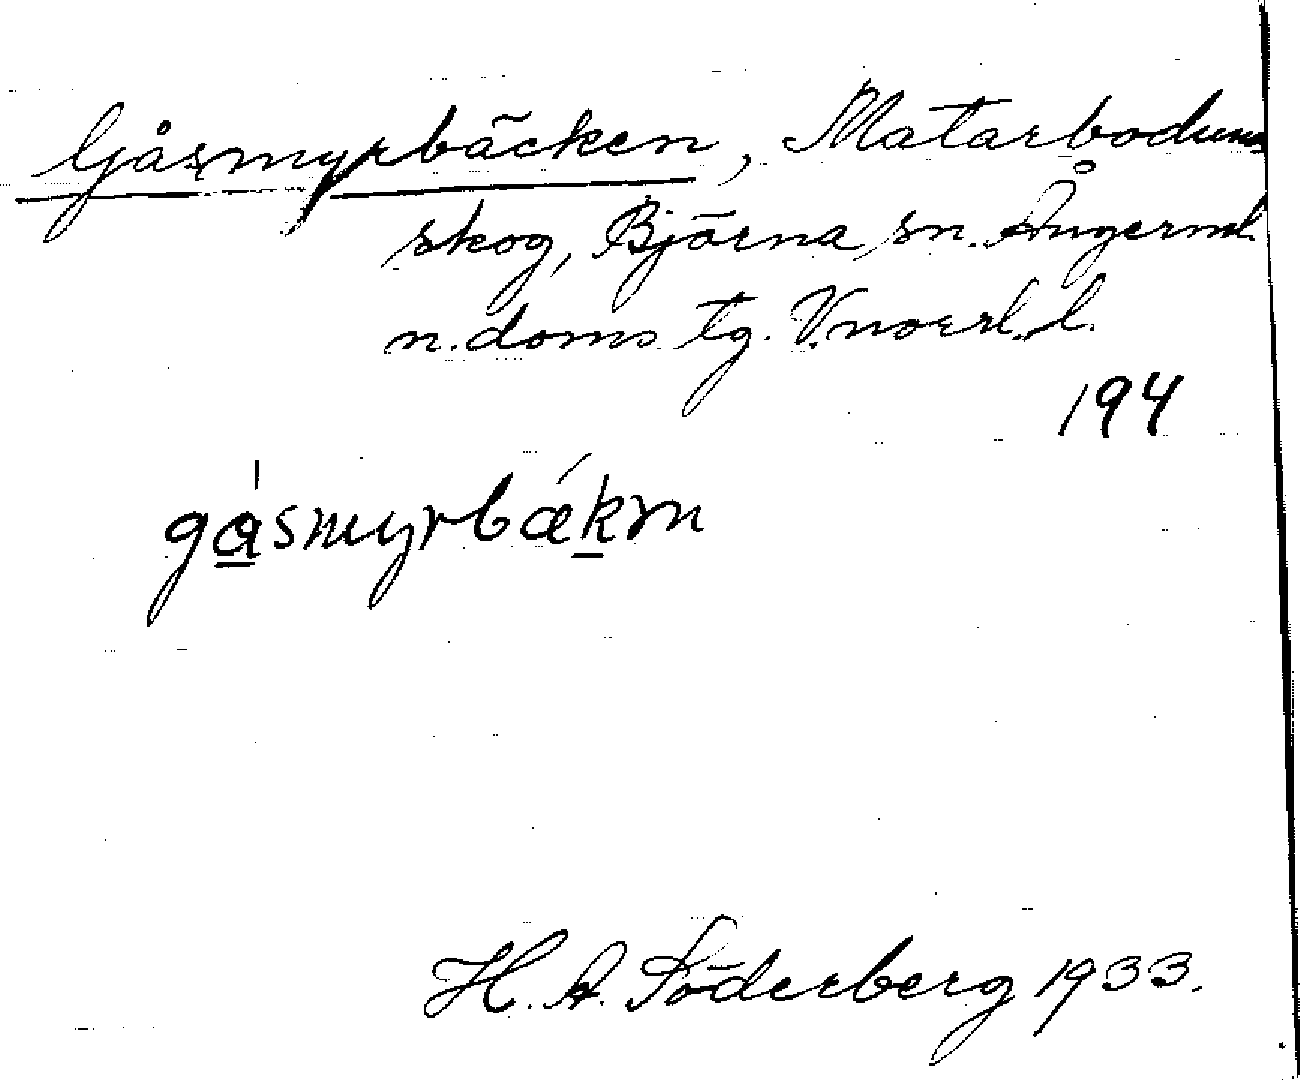 Gåsmyrbäcken, Matarboduns
skog, Björna sn. Ångerml.
n. doms tg. V.norrl. l.
194
gåsmyrbækm
H. A. Söderberg 1933.